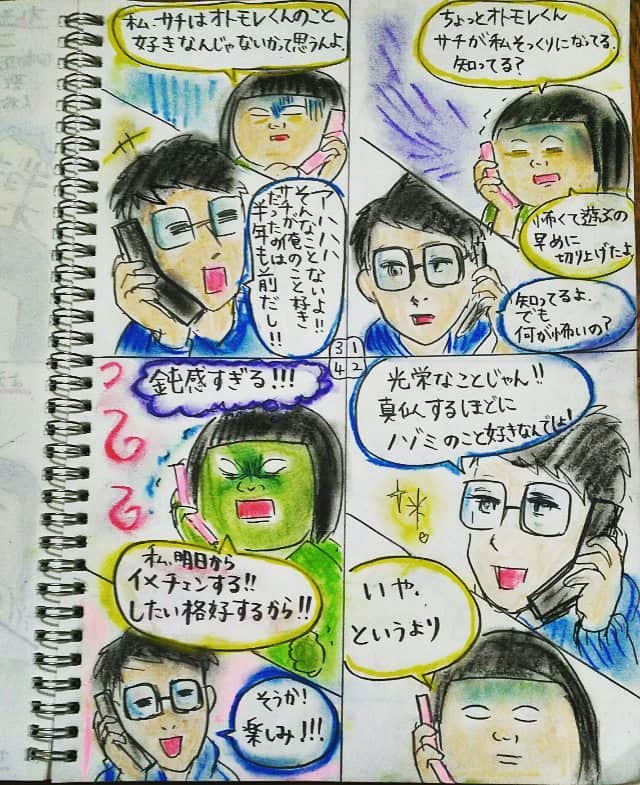 ちょっとオトモレくん
サチが私そっくりになってる.
知ってる?
怖くて遊ぶの
早めに
切り上げたよ
知ってるよ.
でも
何が怖いの?
1
2
3
4
光栄なことじゃん!!
真似するほどに
ノゾミのこと好きなんでしょ!
いや.
というより
私、サチはオトモレくんのこと
好きなんじゃないかって思うんよ.
アハハハ
そんなことないよ!!
サチが俺のこと好き
だったのは
半年も前だし!!
鈍感すぎる!!!
私、明日から
イメチェンする!!
したい格好するから!!
そうか!
楽しみ!!!